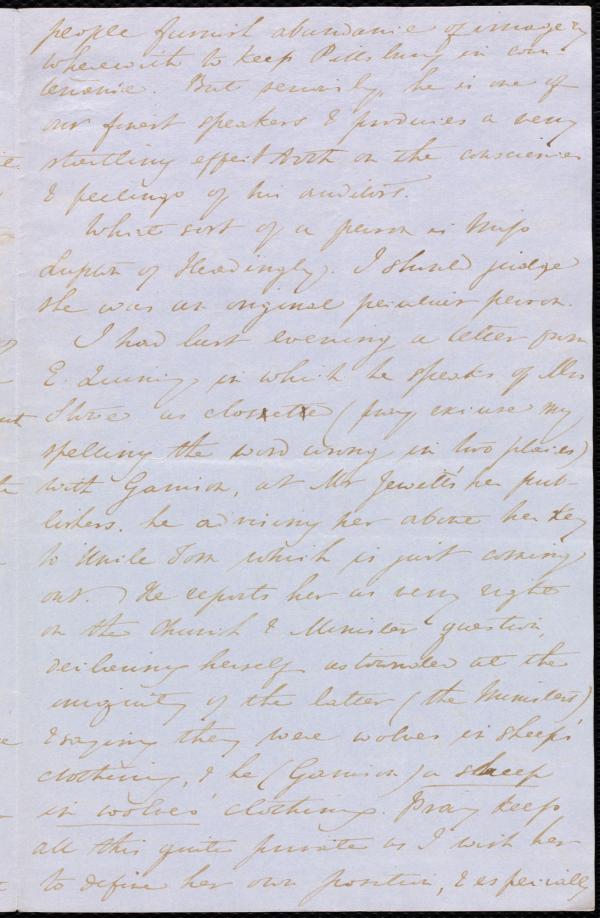 people furnish abundance of imagery
wherewith to keep Pillsbury in coun-
tenance. But seriously, he is one of
our finest speakers & produces a very
startling effect both on the consciences
& feelings of his auditors.
What sort of a person is Miss
Lupton of Headingly. I should judge
she was an original peculiar person.
I had last evening a letter from
E. Quincy, in which he speaks of Mrs
Stowe as closxettx (pray excuse my
spelling the word wrong in two places)
with Garrison, at Mr Jewett's her pub-
lishers. he advising her about her Key
to Uncle Tom which is just coming
out. He reports her as very right
on the Church & Minister question,
declaring herself astounded at the
iniquity of the latter (the Ministers)
& saying they were wolves in sheep's
clothing, & he (Garrison) a sheep
in wolves' clothing. Pray keep
all this quite private as I wish her
to define her own position, & especially